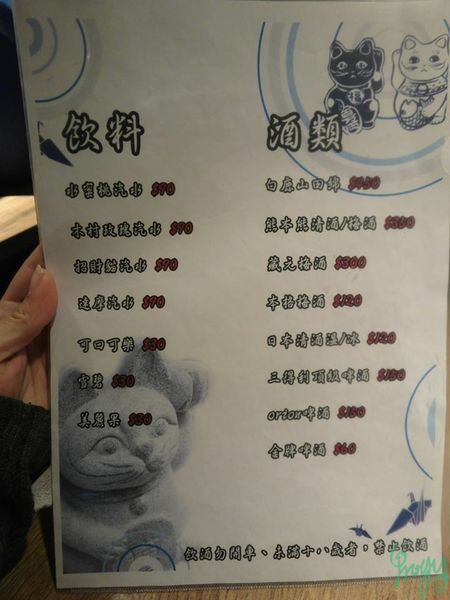 飲料
水蜜桃汽水 $90
木村玫瑰汽水 $90
招財貓汽水 $90
達摩汽水 $90
可口可樂 $30
雪碧 $30
美粒果 $30
酒類
白鹿山田錦 $450
熊本熊清酒/梅酒 $350
藏元梅酒 $300
本格梅酒 $120
日本清酒溫/冰 $120
三得利頂級啤酒 $150
orion啤酒 $150
金牌啤酒 $60
飲酒勿開車、未滿十八歲者,禁止飲酒